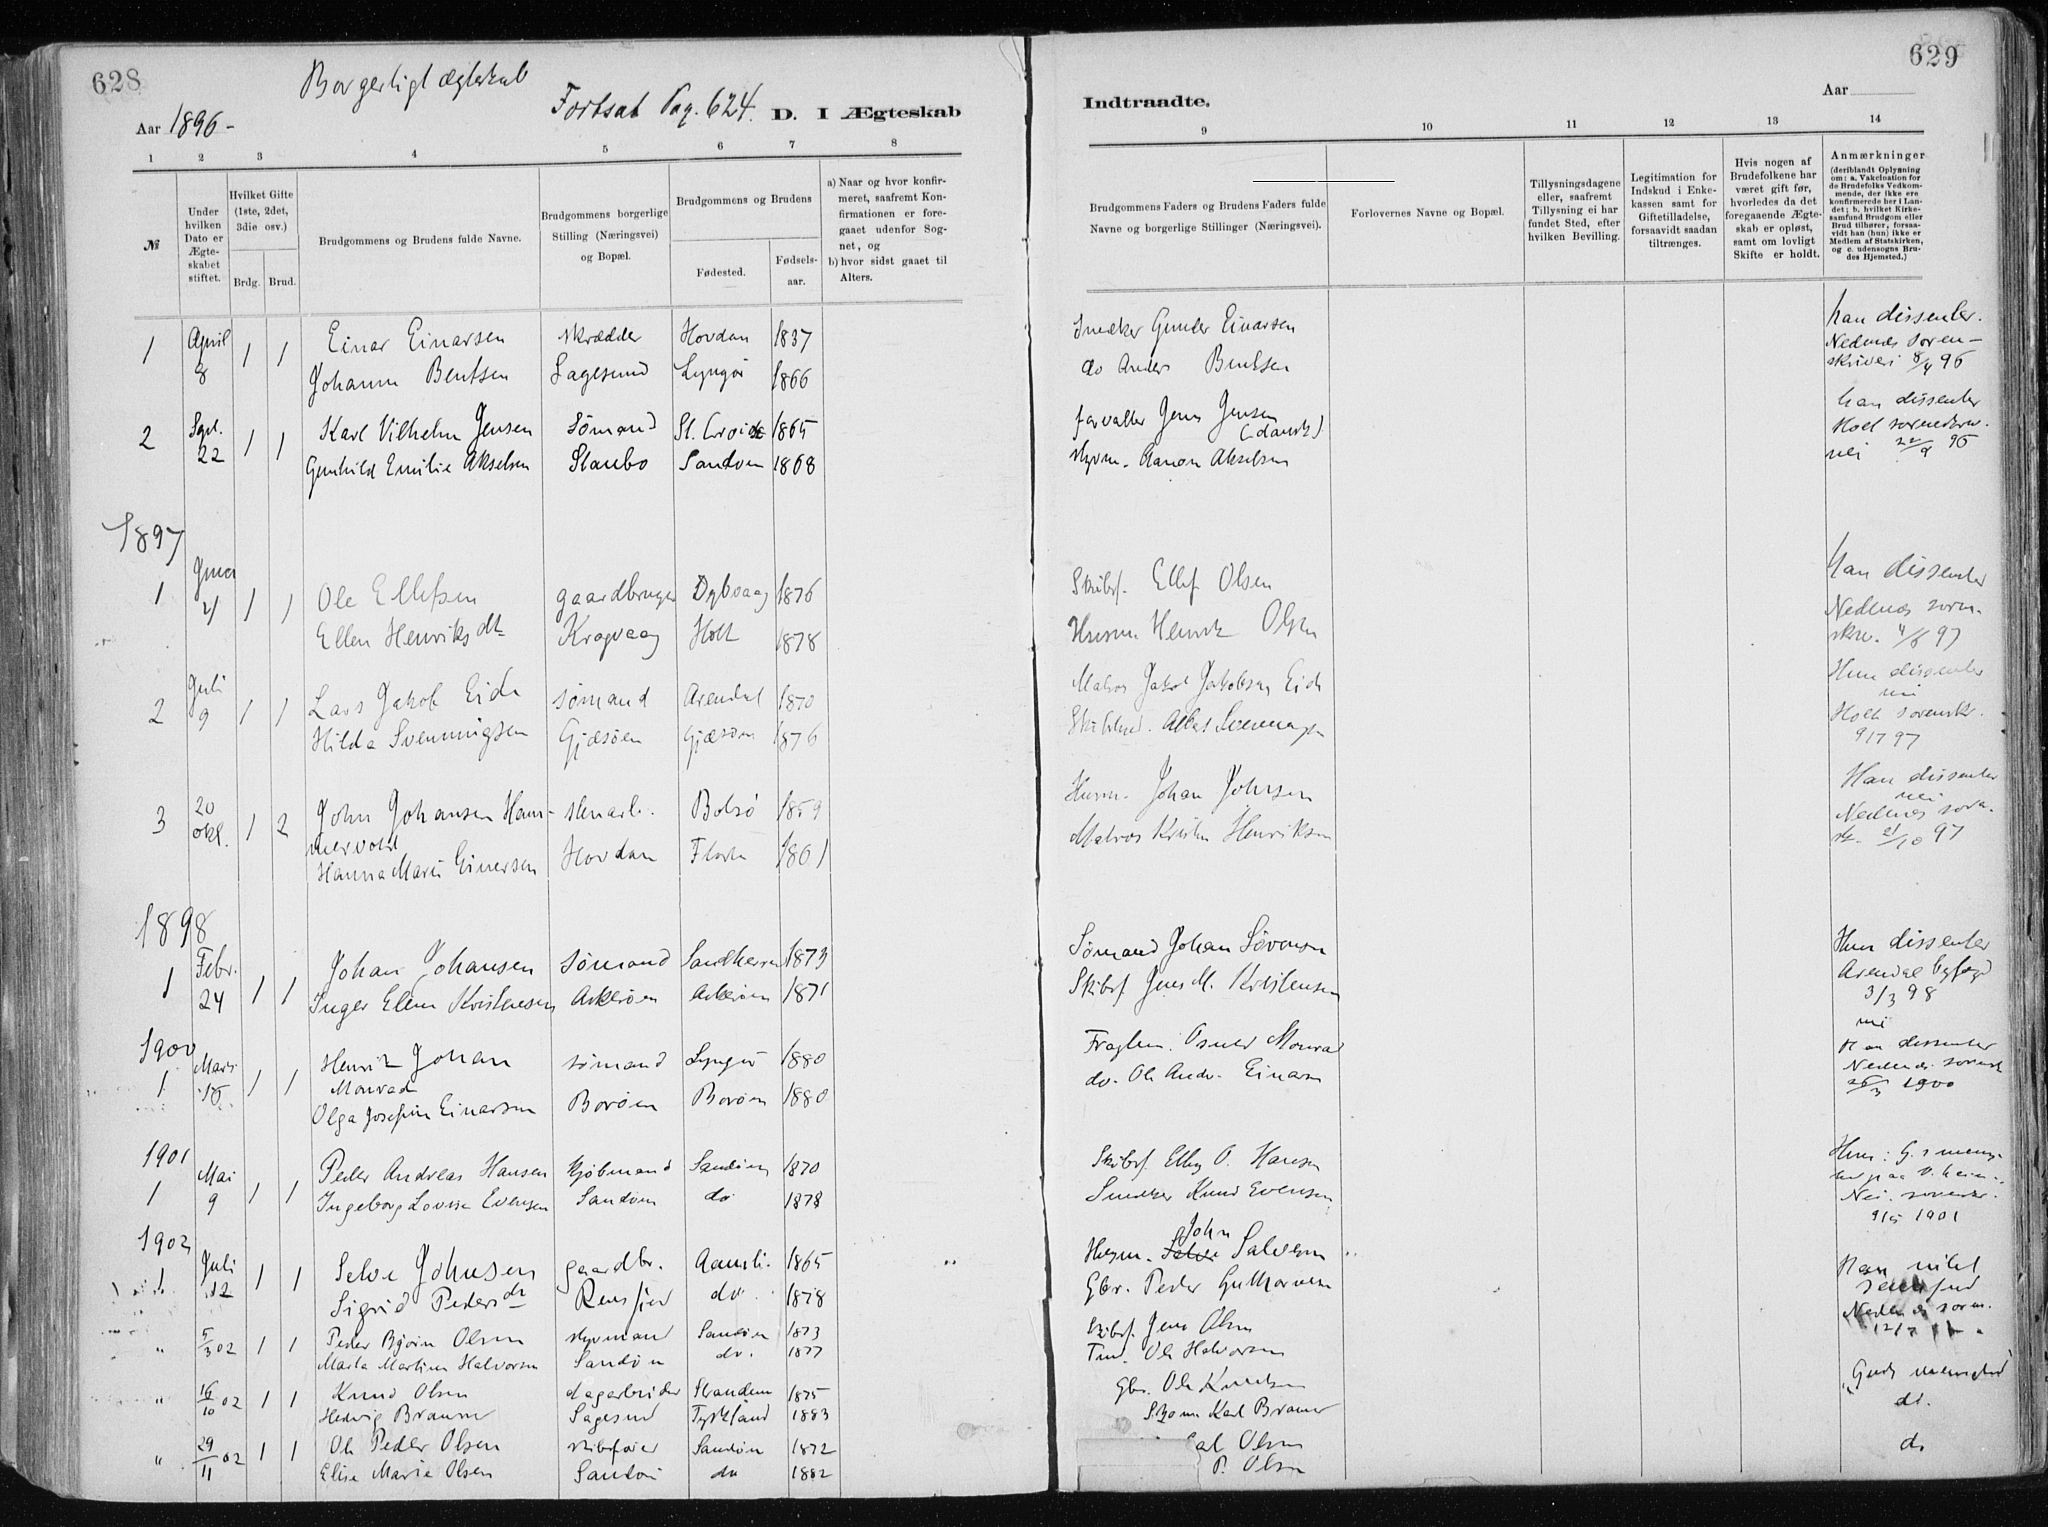 628
Borgerligt ægteskab
Fortsat Pag. 624.
Aar 1896-
D. I Ægteskab
1 2 3 4 5 6 7 8
№
Under hvilken Dato er Ægteskabet stiftet.
Hvilket Gifte (1ste, 2det, 3die osv.)
Brdg. Brud.
Brudgommens og Brudens fulde Navne.
Brudgommens borgerlige Stilling (Næringsvei) og Bopæl.
Brudgommens og Brudens
Fødested.
Fødsels-aar.
a) Naar og hvor konfirmeret, saafremt Konfirmationen er foregaaet udenfor Sognet, og
b) hvor sidst gaaet til Alters.
1 April 8 1 1 Einar Einarsen skrædder Hovdan 1837
Johanne Bentsen Lagesund Lyngør 1866
2 Sept. 22 1 1 Karl Vilhelm Jensen Sømand St. Croix 1865
Gunhild Emilie Akselsen Staubo Sandøen 1868
1897
1 21 1 1 Ole Ellefsen gaardbruger Dybvaag 1876
Ellen Henriksdt Kragvaag Holt 1878
2 Juli 9 1 1 Lars Jakob Eide sømand Arendal 1870
Hilda Svenningsen Gjæsøen Gjæsøen 1876
3 20 okt. 1 2 John Johansen Ham- stenarb. Bolsø 1859
mervold
Hanna Marie Einersen Hovdan Flosta 1861
1898
1 Febr. 24 1 1 Johan Johansen sømand Sandherred 1873
Inger Elene Kristensen Askerøen Askerøen 1871
1900
1 Marts 1 1 Henrik Johan sømand Lyngør 1880
Monrad
Olga Josefine Einarsen Borøen Borøen 1880
1901
1 Mai 9 1 1 Peder Andreas Hansen kjøbmand Sandøen 1870
Ingeborg Lovise Evensen Sandøen do 1878
1902
1 Juli 12 1 1 Selve Johnsen gaardbr. Aamli. 1865
Sigrid Pedersdt do. 1878
" 5/3 02 1 1 Peder Bjørn Olsen styrmand Sandøen 1873
Marta Martine Halvorsen Sandøen do. 1877
" 16/10 02 1 1 Knud Olsen 1875
Hedvig Sagesund Tyskland 1883
" 29/11 02 1 1 Ole Peder Olsen skibsfører Sandøen 1872
Elise Marie Olsen Sandøen do 1882
629
Indtraadte.
Aar
9 10 11 12 13 14
Brudgommens Faders og Brudens Faders fulde Navne og borgerlige Stillinger (Næringsvei).
Forlovernes Navne og Bopæl.
Tillysningsdagene eller, saafremt Tillysning ei har fundet Sted, efter hvilken Bevilling.
Legitimation for Indskud i Enkekassen samt for Giftetilladelse, forsaavidt saadan tiltrænges.
Hvis nogen af Brudefolkene har været gift før, hvorledes da det foregaaende Ægteskab er opløst, samt om lovligt Skifte er holdt.
Anmærkninger (deriblandt Oplysning om: a. Vakcination for de Brudefolks Vedkommende, der ikke ere konfirmerede her i Landet; b. hvilket Kirkesamfund Brudgom eller Brud tilhører, forsaavidt han (hun) ikke er Medlem af Statskirken, og c. udensogns Brudes Hjemsted.)
Snedker Gunder Einarsen
do Anders Bentsen
han dissenter.
Nedenæs soren-
skriveri 8/4 96
forvalter Jens Jensen
(dansk)
styrm. Aanon Akselsen
han dissenter
Holt
nei 22/9 96
Skibsf. Ellef Olsen
Husm. Henrik Olsen
han dissenter
Nedenæs soren-
skr. 97
Matros Jakob Jakobsen Eide
Hun dissenter
nei
Holt sorenskr.
9/7 97
Husm. Johan Johnsen
Matros Kristen Henriksen
Han dissenter
nei
Nedenæs soren-
sk. 21/10 97
Sømand Johan Sørensen
Skibsf. Jens M. Kristensen
Hun dissenter
Arendal byfogd
3/3 98
nei
Monrad
do. Ole Andr. Einarsen
Han dissenter
Nedenæs sorensk
1900
Skibsf. Hansen
Snedker Knud Evensen
Nei. sorenskr.
9/5 1901
John
Husm. Selve Salvesen
Gbr. Peder Guthormsen
Nedenæs soren.
Skibsf. Jens Olsen
Ole Halvorsen
Guds menighed
Gbr. Ole Knudsen
Karl
do.
Olsen
P. Olsen
do